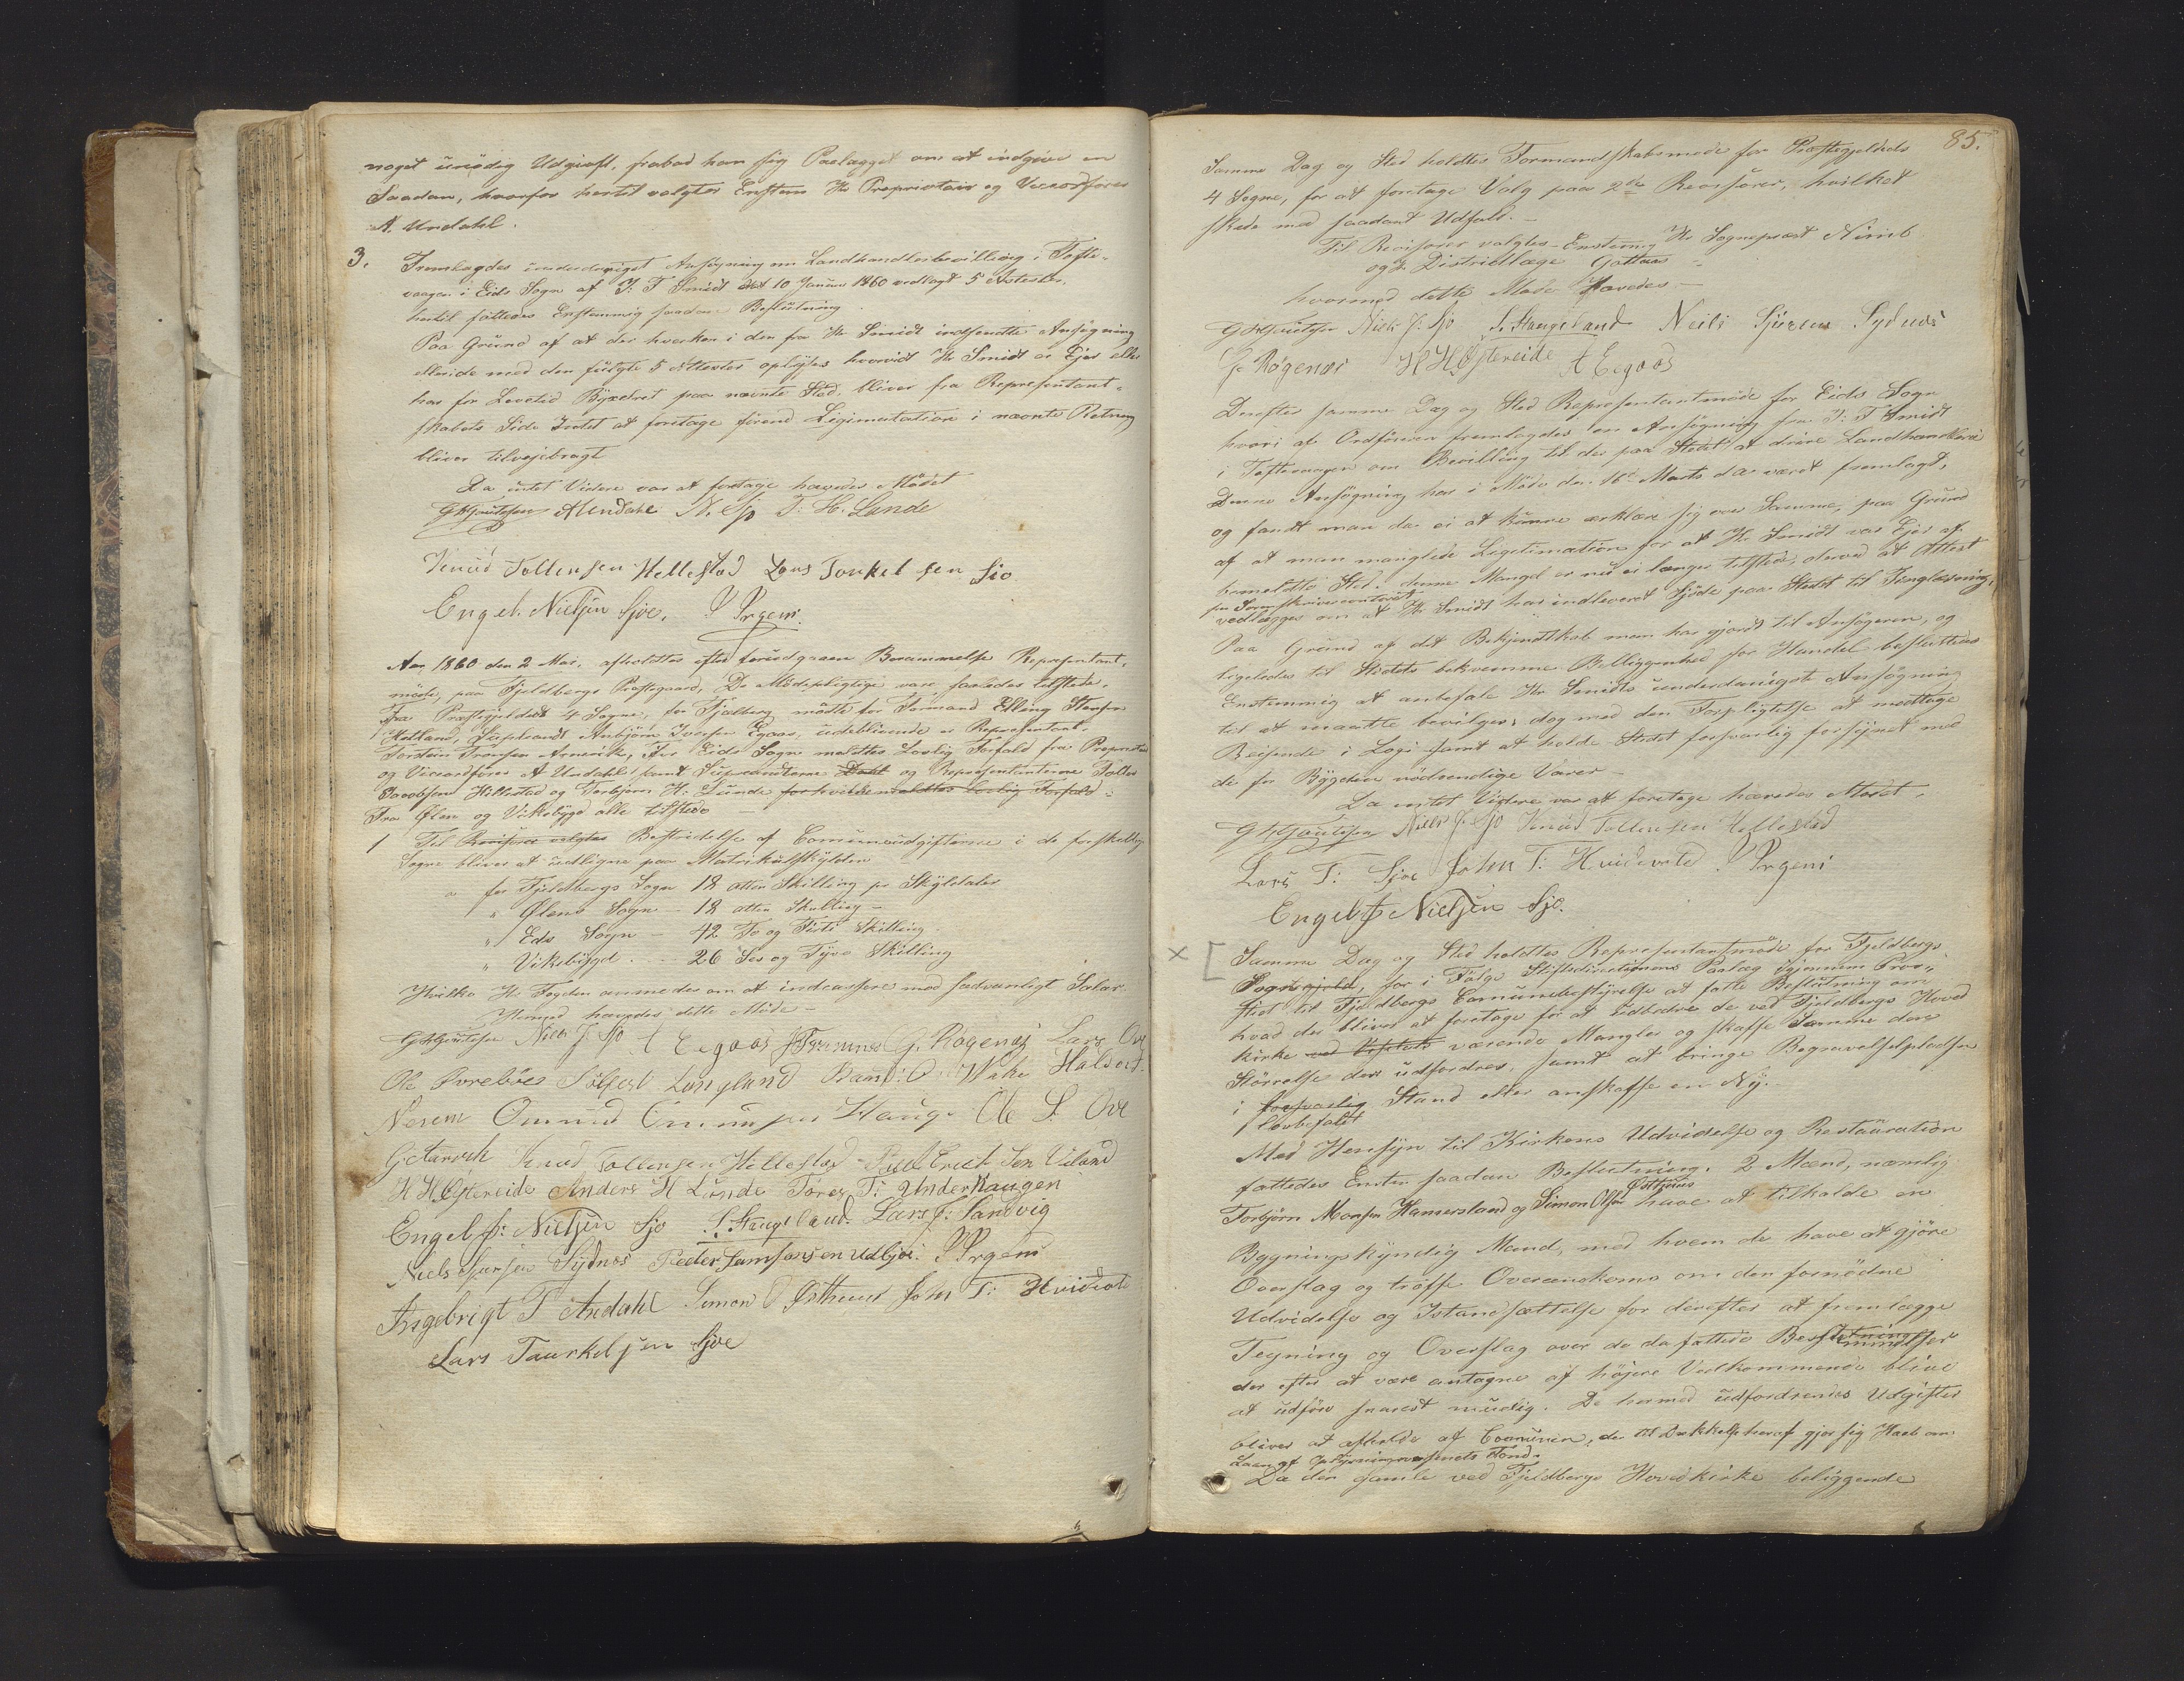 noget unödig Udgivt, frabad han sig Paalægget om at indgive en
Saadan, hvorfor hertil valgtes Enstem Hr Proprietair og Viceordförer
A. Undahl.
3. Fremlagdes underdanigst Ansögning om Landhandlerbevilling i Tofte-
vaagen i Eids Sogn af J: T Smidt dat 10 Januar 1860 vedlagt 5 Attester.
hertil fattedes Enstemmig saadan Beslutning.
Paa Grund af at der hverken i den fra Hr Smidt indsendte Ansögning
elleride med den fulgte 5 Attester oplyses hvorvidt Hr Smidt er Ejer eller
har for Levetid Byxelret paa nævnte Sted, bliver fra Representant-
skabets Side Intet at foretage förend Legimitation i nævnte Retning
bliver tilvejebragt
Da intet Videre var at foretage hævedes Mödet
AUndahl N. Sjo T. H. Lunde
Knud Tollevsen Hellestad Lars Torkelsen Sio
Engel. Nielsen Sjoe.
Aar 1860 den 2 Mai. afholdtes efter forudgaaen Berammelse Representant-
möde, paa Fjeldbergs Præstegaard, De Mödepligtige vare saaledes tilstede.
Fra Præstegjeldets 4 Sogne, for Fjælberg mödte for Formand Elling
Hetland, Supleandt Anbjörn Iversen Egaas, udeblivende er Representant.
Torstein Tronsen Amevik, For Eids Sogn meldtes Lovlig Forfald fra Proprietair
og Viceordförer A Undahl samt Supleandterne Dahl og Representanterne Tollev
Jacobsen Hillestad og Torbjörn H. Lunde for hvilke meldtes lovlig Forfald.
Fra Ølen og Viksbygd alle tilstede
1 Til Revisorer valgtes Bestridelse af Communeudgifterne i de forskellige
Sogne bliver at udligne paa Matrikulskylden
a for Fjeldbergs Sogn 18 atten Skilling pr Skyldaler
" Ølens Sogn - 18 atten Skilling -
" Eds Sogn - 42 To og Firti Skilling
" Viksbygd - 26 Sex og Tyve Skilling
Hvilke Hr Fogden anmodes om at indcassere med sædvanligt Salær.
Hermed hævedes dette Möde -
Niels J. Sjo A Eegaas G. Røgenæs Lars
Ole Sölfest Langland Wake Haldor
Neseim Omund Omundsen Hauge Ole S.
Knud Tollevsen Hillestad
H H Østereide Anders H Lunde Tores T: Underhaugen
Engel Nielsen Sjo S. Haugeland Lars J. Sandvig
Niels Sjursen Sydnes Peder Samsonsen Udbjoe
Ingebrigt T Andahl Simon O Østhuus John T: Hvidevold
Lars Taurkelsen Sjoe
85.
Samme Dag og Sted holdtes Formandskabsmöde for Præstegjeldets
4 Sogne, for at foretage Valg paa 2de Revisorer, hvilket
skede med saadant Udfald. -
Til Revisorer valgtes Enstemig Hr Sognepræst Nimb
og Hr Districtlæge Gottaas
hvormed dette Möde hævedes. -
Niels J. Sjo S. Haugeland Neils Sjursen Sydnæs
G. Røgenæs H H Østereide A Eegaas
Derefter samme Dag og Sted Representantmöde for Eids Sogn
hvori af Ordföreren fremlagdes en Ansögning fra J: T Smidt
i Toftevaagen om Bevilling til der paa Stedet at drive Landhandleri
Denne Ansögning har i Möde den 16de Marts d.a. været fremlagt,
og fandt man da ei at kunne erklære sig over Samme, paa Grund
af at man manglede Legitimation for at Hr Smidt var Ejer af
bemeldte Sted. denne Mangel er nu ei længer tilstede, derved at Attest
fra Sorenskrivercontoret
vedlægges om at Hr Smidt har indleveret Skjöde paa Stedet til Tinglæsning.
Paa Grund af det Bekjendtskab man har gjordt til Ansögeren, og
ligeledes til Stedets bekvemme Belliggenhed for Handel besluttedes
Enstemmig at anbefale Hr Smidts underdanigste Ansögning
til at maatte bevilges; dog med den Forpligtelse at modtage
Reisende i Logi samt at holde Stedet forsvarlig forsynet med
de for Bygden nödvendige Varer -
Da intet Videre var at foretage hævedes Mödet.
Niels J. Sjo Knud Tollevsen Hellestad
Lars T: Sjoe John T: Hvidevold
Engel Nielsen Sjo.
Samme Dag og Sted holdtes Representantmöde for Fjeldbergs
Sognegjeld, for i Fölge Stiftsdirectionens Paalæg igjennem Prov-
stiet til Fjeldbergs Comunebestyrelse at fatte Beslutning om
hvad der bliver at foretage for at udbedre de ved Fjeldbergs Hoved
kirke ved værende Mangler og skaffe Samme den
Störrelse der udfordres, samt at bringe Begravelsespladsen
i forsvarlig Stand eller anskaffe en Ny. -
lovbefalet
Med Hensyn til Kirkens Udvidelse og Restauration
fattedes Enstem saadan Beslutning. 2 Mænd, nemlig
Østhuus
Torbjörn Monsen Hamersland og Simon Olsen have at tilkalde en
Bygningskyndig Mand, med hvem de have at gjöre
Overslag og tröffe Overenskoms om den fornödne
Udvidelse og Istandsættelse for derefter at fremlægge
Tegning og Overslag over de da fattede Beslutninger
der efter at være antagne af höjere Vedkommende blive
at udföre snarest mulig. De hermed udfordrendes Udgifter
bliver at afholde af Communen, der til Dækkelse heraf gjör sig Haab om
Laan af Oplysningsvæsenets Fond.
Da den gamle ved Fjeldbergs Hovedkirke beliggende